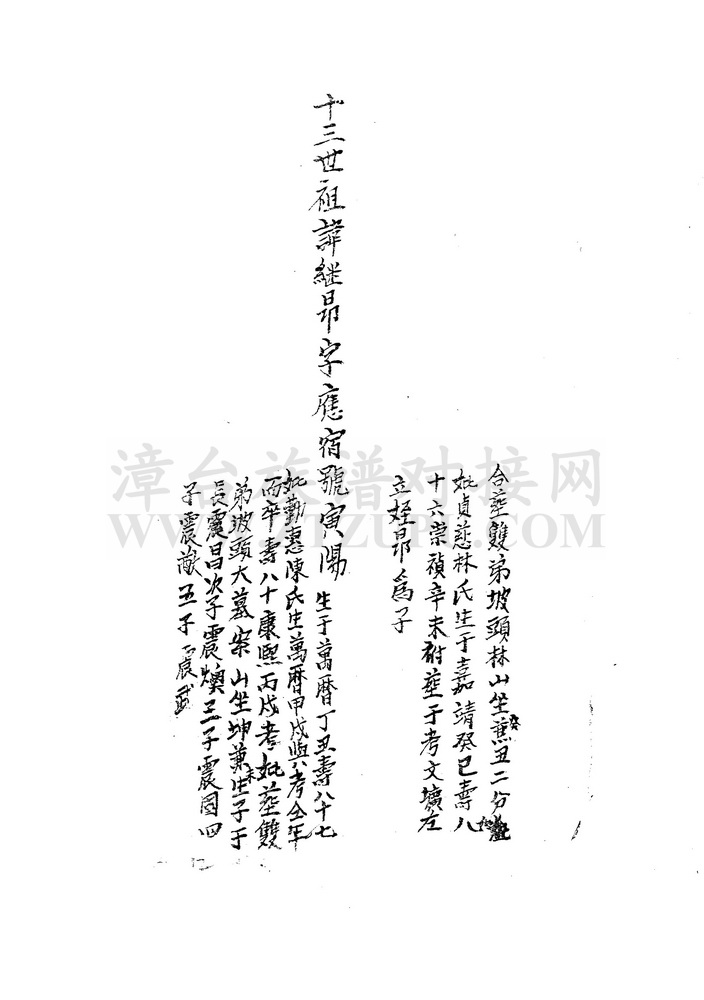 合葬雙弟坡頭林山坐癸兼丑二分
妣貞慈林氏生于嘉靖癸巳壽八
十六崇禎辛未祔葬于考文壙左
立姪昻為子
十三世祖諱継昻字應宿號寅陽生于萬曆丁丑壽八十七
妣勤惠陳氏生萬曆甲戌與考仝年
而卒壽八十康熙丙戌考妣葬雙
弟坡頭大墓案山坐坤兼未生子于
長震昌次子震煥三子震國四
子震敵五子震武
漳台族谱对接网